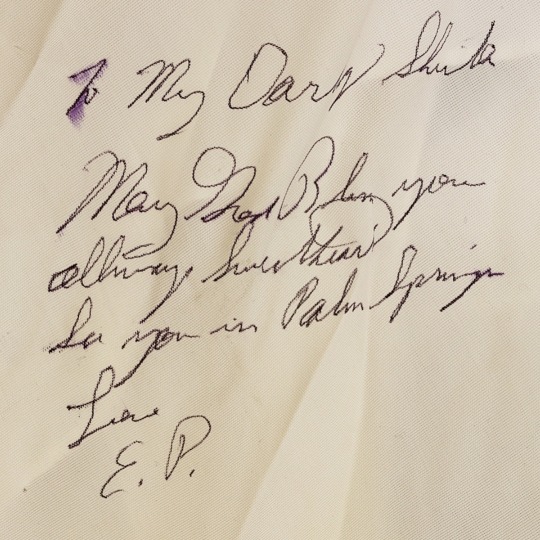 To My Darly Sheila
May God Bless you
allways Sweetheart
See you in Palm Springs
Love
E. P.